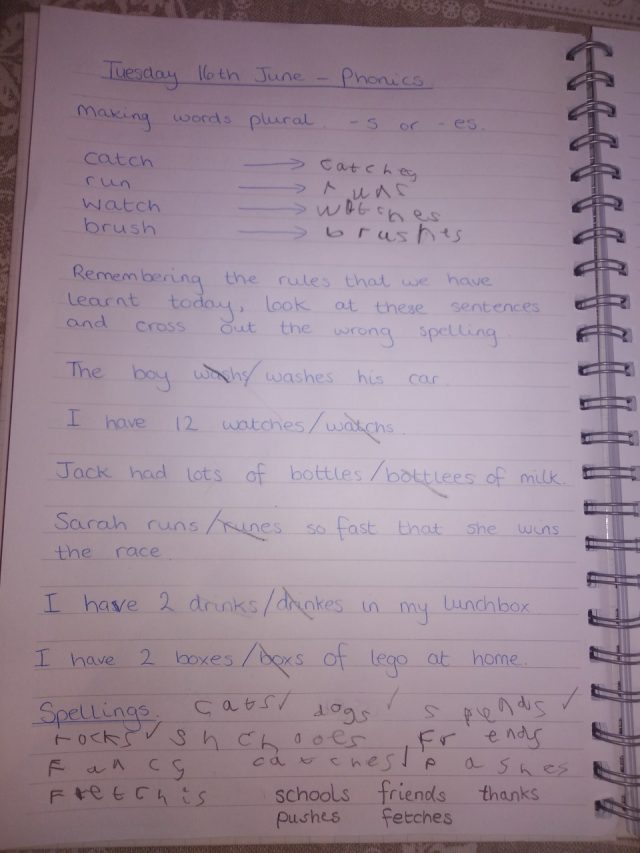 Tuesday 16th June - Phonics
Making words plural. -s or -es.
catch → catches
run → runs
watch → watches
brush → brushes
Remembering the rules that we have
learnt today, look at these sentences
and cross out the wrong spelling.
The boy washs/washes his car.
I have 12 watches/watchs.
Jack had lots of bottles/bottlees of milk.
Sarah runs/runes so fast that she wins
the race.
I have 2 drinks/drinkes in my lunchbox
I have 2 boxes/boxs of lego at home.
Spellings. cats ✓ dogs ✓ spends ✓
rocks ✓ shchooes frends
catches ✓ pashes
fretchis schools friends thanks
pushes fetches